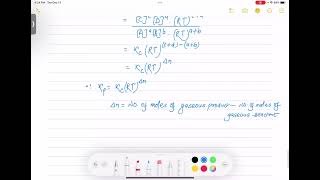 4:24 PM Tue Dec 17
= [C]^c [D]^d · (RT)^c+d
[A]^a [B]^b · (RT)^a+b
= K_c (RT)^(c+d) - (a+b)
= K_c (RT)^Δn
∴ K_p = K_c (RT)^Δn
Δn = No. of moles of gaseous product - No. of moles of
gaseous reactant